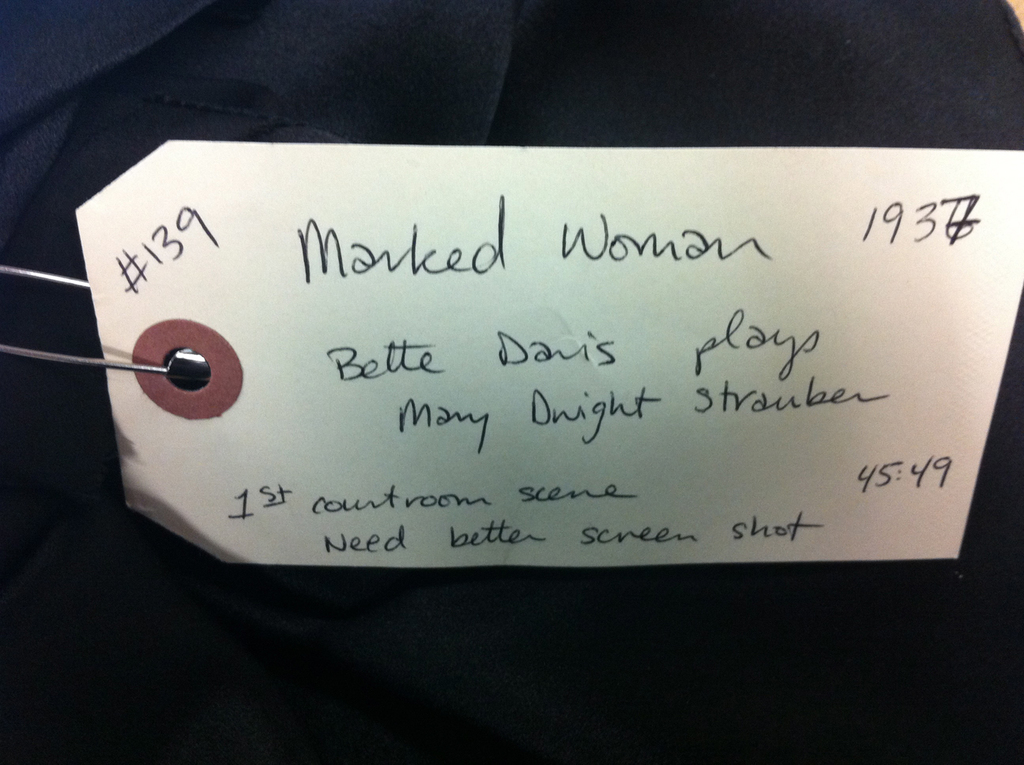 #139
Marked Woman 1937
Bette Davis plays
Mary Dwight Strauber
45:49
1st courtroom scene
Need better screen shot